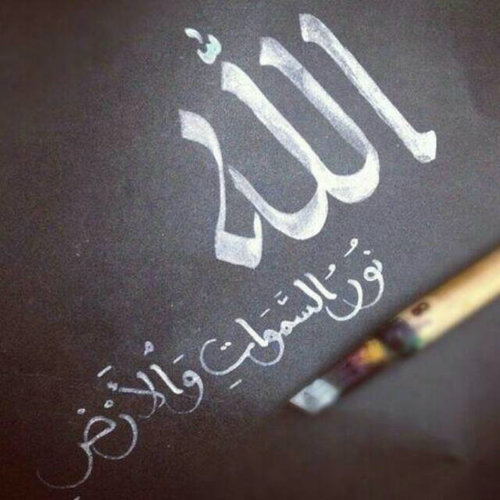 اللهُ
نُورُ السَّمَوَاتِ وَالْأَرْضِ